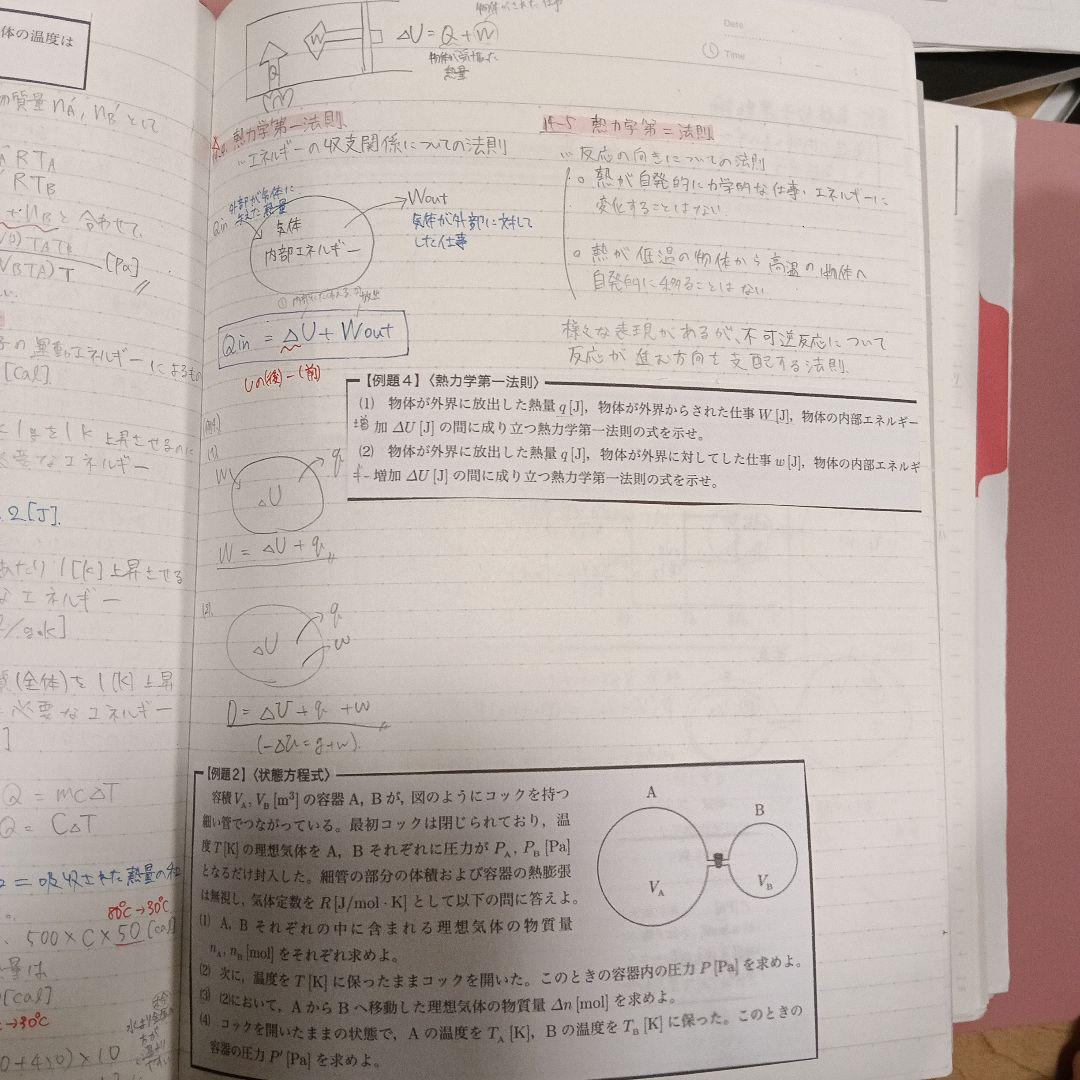 体の温度は
物質量nA', nB'として
RTA
RTB
と合わせて、
[Pa]
の運動エネルギーによるもの
[cal]
1gを1K上昇させるのに
必要なエネルギー
.2[J].
あたり1[K]上昇させる
なエネルギー
質(全体)を1[K]上昇
必要なエネルギー
Q = mc△T
Q = C△T
=吸収された熱量の和
80℃→30℃
500×C×50[cal]
量は
[cal]
→30℃
Q
W
△U = Q + W
物体がされた仕事
物体が受け取った
熱量
熱力学第一法則
〃エネルギーの収支関係についての法則
外部が気体に
与えた熱量
Qin
気体
内部エネルギー
Wout
気体が外部に対して
した仕事
Qin = △U + Wout
Uの(後)-(前)
14-5 熱力学第二法則
〃反応の向きについての法則
○熱が自発的に力学的な仕事・エネルギーに
変化することはない
○熱が低温の物体から高温の物体へ
自発的に移ることはない
様々な表現があるが、不可逆反応について
反応が進む方向を支配する法則.
Date
Time
【例題4】〈熱力学第一法則〉
(1) 物体が外界に放出した熱量 q [J],物体が外界からされた仕事 W [J],物体の内部エネルギー
増加 ΔU [J] の間に成り立つ熱力学第一法則の式を示せ。
(2) 物体が外界に放出した熱量 q [J],物体が外界に対してした仕事 w [J],物体の内部エネルギ
ー増加 ΔU [J] の間に成り立つ熱力学第一法則の式を示せ。
(1)
W
q
△U
W = △U + q
(2)
q
△U
w
0 = △U + q + w
(-△U = q+w).
【例題2】〈状態方程式〉
容積 VA, VB [m³] の容器 A, B が,図のようにコックを持つ
細い管でつながっている。最初コックは閉じられており,温
度 T [K] の理想気体を A, B それぞれに圧力が PA, PB [Pa]
となるだけ封入した。細管の部分の体積および容器の熱膨張
は無視し,気体定数を R [J/mol・K] として以下の問に答えよ。
(1) A, B それぞれの中に含まれる理想気体の物質量
nA, nB [mol] をそれぞれ求めよ。
(2) 次に,温度を T [K] に保ったままコックを開いた。このときの容器内の圧力 P [Pa] を求めよ。
(3) (2)において,A から B へ移動した理想気体の物質量 Δn [mol] を求めよ。
(4) コックを開いたままの状態で,A の温度を TA [K],B の温度を TB [K] に保った。このときの
容器の圧力 P' [Pa] を求めよ。
A
B
VA
VB